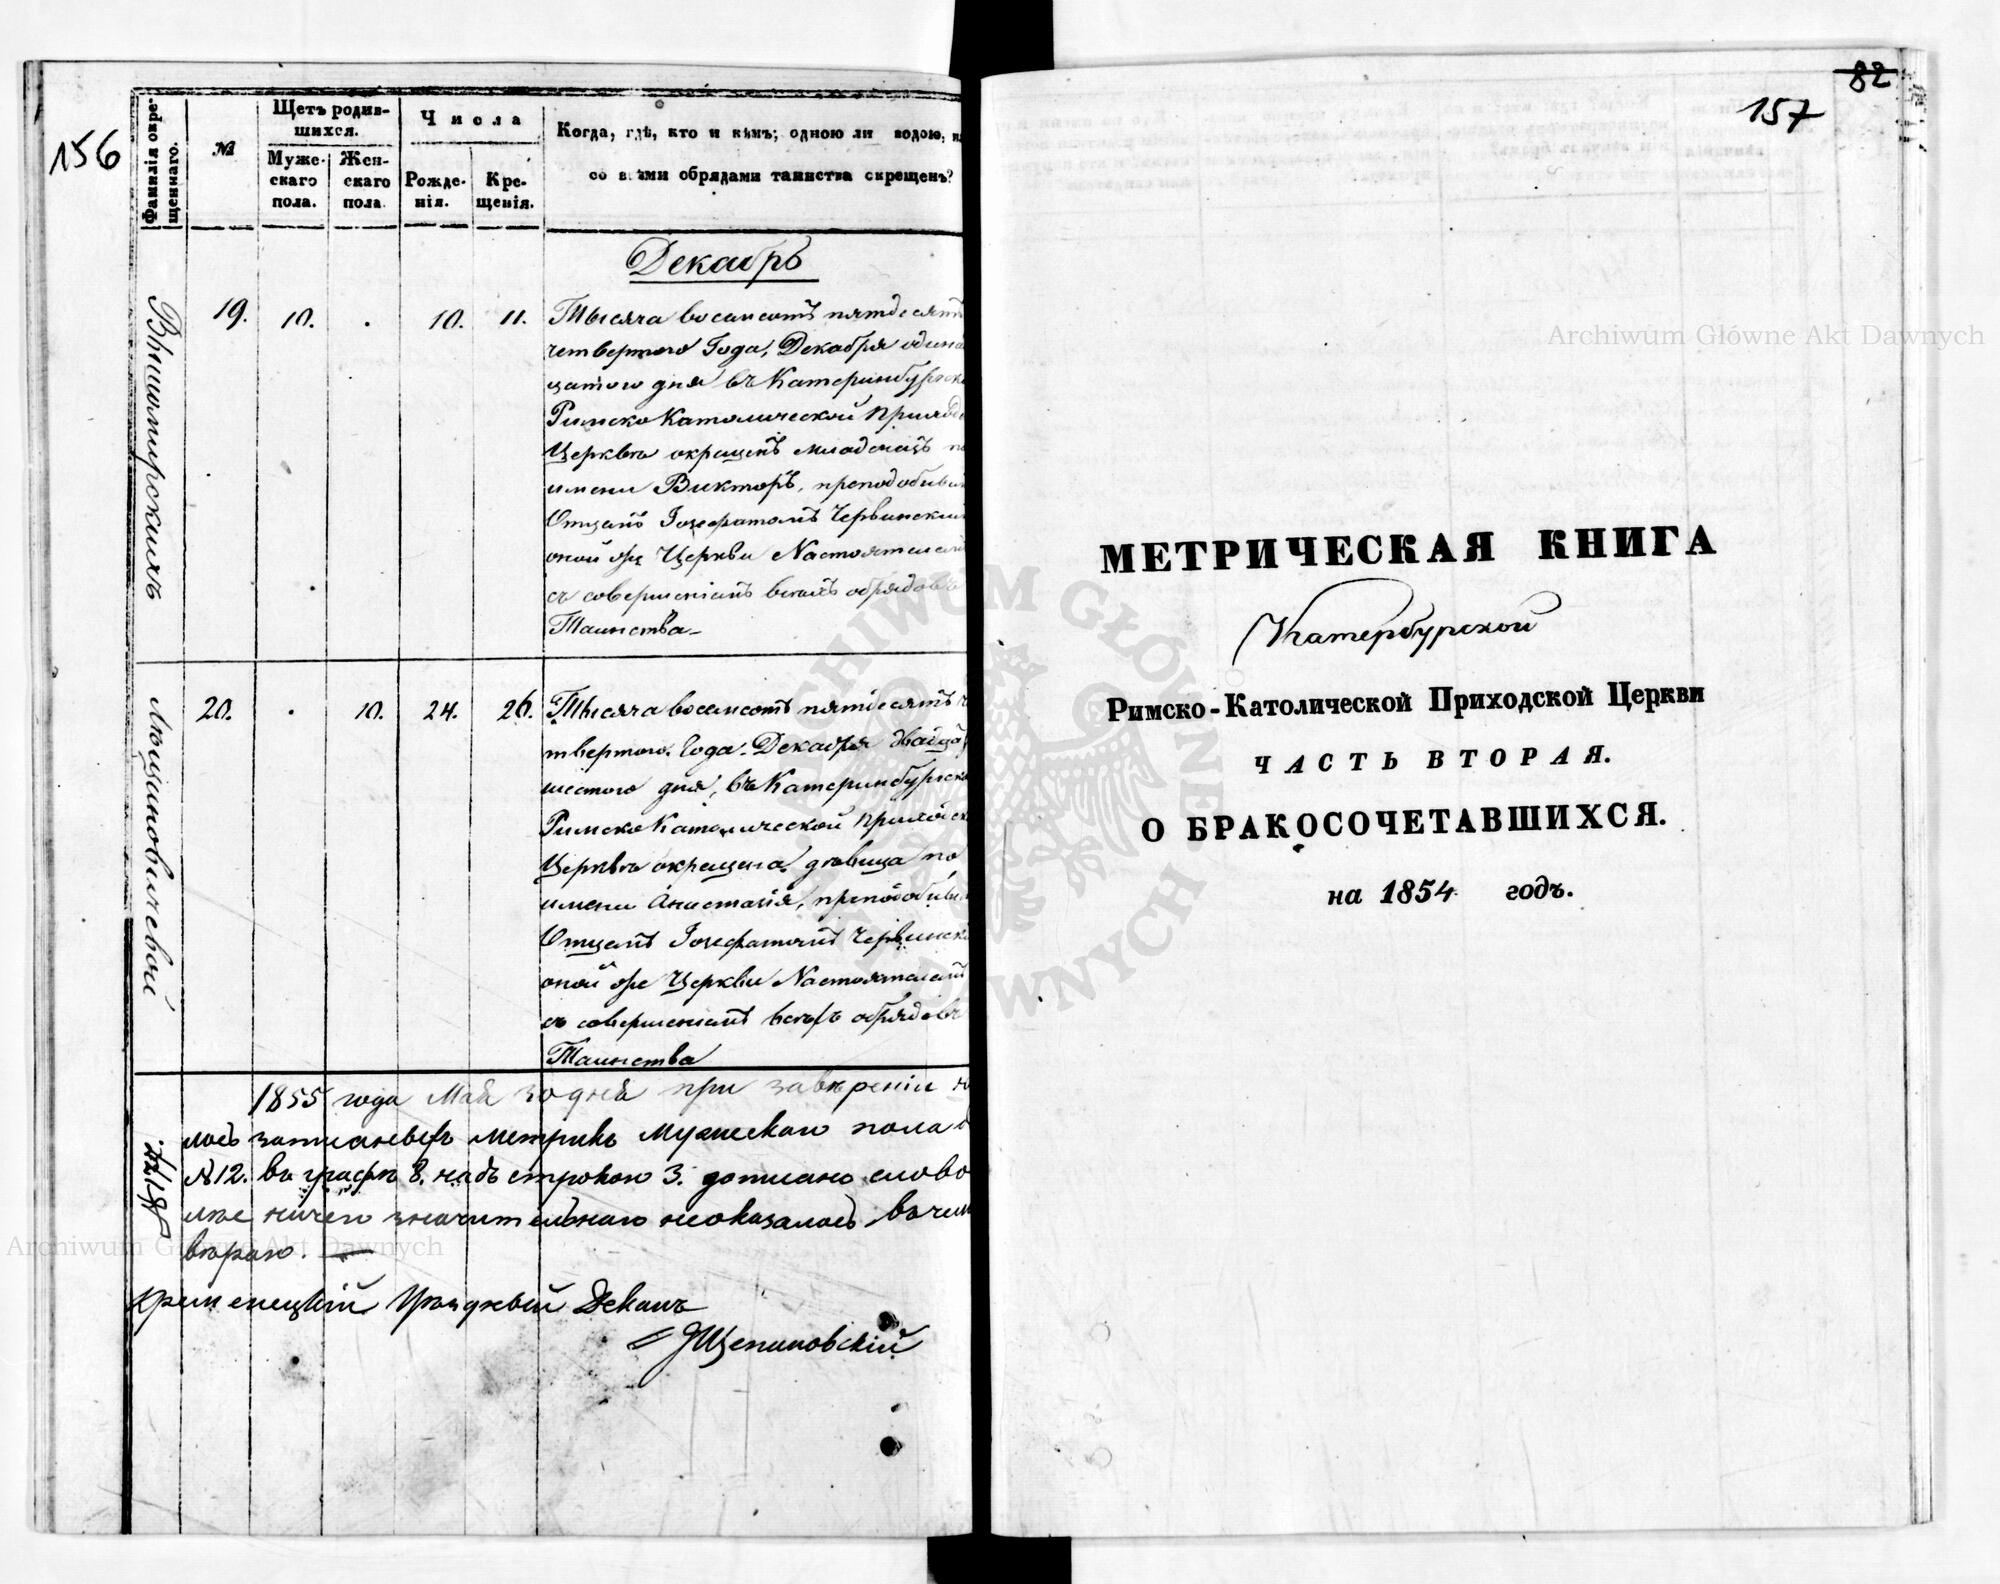 156
Фамилія окре-
щеннаго.
№
Щетъ родив-
шихся.
Муже-
скаго
пола.
Жен-
скаго
пола.
Числа
Рожде-
нія.
Кре-
щенія.
Когда, гдѣ, кто и кѣмъ; одною ли водою, и
со всѣми обрядами таинства окрещенъ?
Декабрь
19. 10. . 10. 11.
Тысяча восемсотъ пятдесятъ
четвертого Года, Декабря одина
цатого дня въ Катеринбургско
Римско Католической Приход
Церквѣ окрещенъ младенецъ по
имени Викторъ, преподобным
Отцемъ Іозефатомъ Червинским
оной же Церкви Настоятелемъ
съ совершеніемъ всѣхъ обрядовъ
Таинства
20. . 10. 24. 26.
Люциновичевой
Тысяча восемсотъ пятдесятъ че
твертого Года Декабря двадца
шестого дня, въ Катеринбургско
Римско Католической Приходск
Церквѣ окрещена дѣвица по
имени Анастазія, преподобным
Отцемъ Іозефатомъ Червинск
оной же Церкви Настоятелемъ
съ совершеніемъ всѣхъ обрядовъ
Таинства
1855 года Мая 30 дня при завѣреніи
записаныхъ метрикъ Мужескаго пола
№12. въ графѣ 8. надъ строкою 3. дописано слово
ничего значительнаго неоказалось въ чем
вѣряю.
Кременецкій Уѣздный Деканъ
Щепановскій
82
157
МЕТРИЧЕСКАЯ КНИГА
Катербурской
Римско-Католической Приходской Церкви
ЧАСТЬ ВТОРАЯ.
О БРАКОСОЧЕТАВШИХСЯ.
на 1854 годъ.
Archiwum Główne Akt Dawnych
Archiwum Główne Akt Dawnych
ARCHIWUM GŁÓWNE AKT DAWNYCH